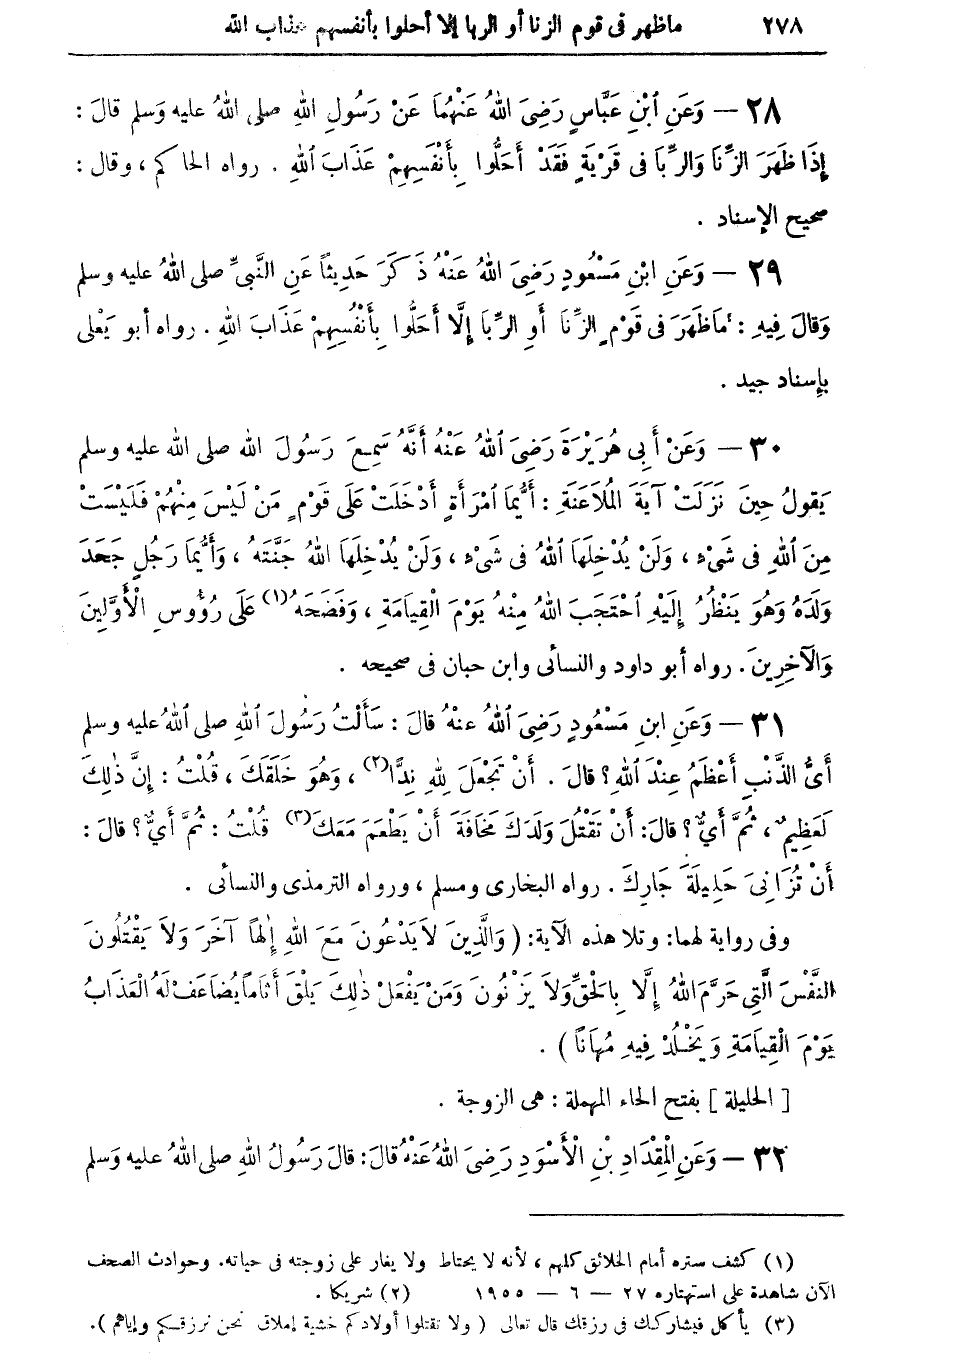 ٢٧٨ ماظهر فى قوم الزنا أو الربا إلا أحلوا بأنفسهم عذاب الله
٢٨ — وَعَنِ ٱبْنِ عَبَّاسٍ رَضِىَ ٱللهُ عَنْهُمَا عَنْ رَسُولِ اللهِ صلى اللهُ عليه وَسلم قالَ :
إِذَا ظَهَرَ الزِّنَا وَالرِّبَا فى قَرْيَةٍ فَقَدْ أَحَلُّوا بِأَنْفَسِهِمْ عَذَابَ ٱللهِ . رواه الحاكم ، وقال :
صحيح الإسناد .
٢٩ — وَعَنِ ابْنِ مَسْعُودٍ رَضِىَ اللهُ عَنْهُ ذَكَرَ حَدِيثاً عَنِ النَّبىِّ صلى اللهُ عليه وسلم
وَقالَ فِيهِ : مَاظَهَرَ فى قَوْمٍ الزِّنَا أَوِ الرِّبَا إِلَّا أَحَلُّوا بِأَنْفُسِهِمْ عَذَابَ اللهِ . رواه أبو يَعْلى
بإسناد جيد .
٣٠ — وَعَنْ أَبِى هُرَيْرَةَ رَضِىَ ٱللهُ عَنْهُ أَنَّهُ سَمِعَ رَسُولَ الله صلى الله عليه وسلم
يَقولُ حِينَ نَزَلَتْ آيَةَ الْمُلَاعَنَةِ : أَيُّمَا ٱمْرَأَةٍ أَدْخَلَتْ عَلَى قَوْمٍ مَنْ لَيْسَ مِنْهُمْ فَلَيْسَتْ
مِنَ ٱللهِ فى شَىْءٍ ، وَلَنْ يُدْخِلَهَا ٱللهُ فى شَىْءٍ ، وَلَنْ يُدْخِلَهَا اللهُ جَنَّتَهُ ، وَأَيُّمَا رَجُلٍ جَحَدَ
وَلَدَهُ وَهُوَ يَنْظُرُ إِلَيْهِ ٱحْتَجَبَ اللهُ مِنْهُ يَوْمَ الْقِيَامَةِ ، وَفَضَحَهُ (١) عَلَى رُؤُوسِ الْأَوَّلِينَ
وَالْآخِرِينَ . رواه أبو داود والنسائى وابن حبان فى صحيحه .
٣١ — وَعَنِ ابنِ مَسْعُودٍ رَضِىَ ٱللهُ عنهُ قالَ : سَأَلْتُ رَسُولَ ٱللهِ صلى ٱللهُ عليه وسلم
أَىُّ الذَّنْبِ أَعْظَمُ عِنْدَ ٱللهِ ؟ قالَ . أَنْ تَجْعَلَ لِلهِ نِدًّا (٢) ، وَهُوَ خَلَقَكَ ، قُلْتُ : إِنَّ ذٰلِكَ
لَعَظِيمٌ ، ثُمَّ أَىٌّ ؟ قالَ : أَنْ تَقْتُلَ وَلَدَكَ مَخَافَةَ أَنْ يَطْعَمَ مَعَكَ (٣) قُلْتُ : ثُمَّ أَىٌّ ؟ قالَ :
أَنْ تُزَانِىَ حَلِيلَةَ جَارِكَ . رواه البخارى ومسلم ، ورواه الترمذى والنسائى .
وفى رواية لهما : وتلا هذه الآية : ( وَالَّذِينَ لاَ يَدْعُونَ مَعَ اللهِ إِلٰهاً آخَرَ وَلاَ يَقْتُلُونَ
النَّفْسَ الَّتِى حَرَّمَ اللهُ إِلَّا بِالْحَقِّ وَلاَ يَزْنُونَ وَمَنْ يَفْعَلْ ذٰلِكَ يَلْقَ أَثَاماً يُضَاعَفْ لَهُ الْعَذَابُ
يَوْمَ الْقِيَامَةِ وَيَخْلُدْ فِيهِ مُهَاناً ) .
[ الحليلة ] بفتح الحاء المهملة : هى الزوجة .
٣٢ — وَعَنِ الْمِقْدَادِ بْنِ الْأَسْوَدِ رَضِىَ اللهُ عَنْهُ قالَ : قالَ رَسُولُ اللهِ صلى اللهُ عليه وَسلم
(١) كشف ستره أمام الخلائق كلهم ، لأنه لا يحتاط ولا يغار على زوجته فى حياته . وحوادث الصحف
الآن شاهدة على استهتاره ٢٧ — ٦ — ١٩٥٥ (٢) شريكا .
(٣) يأكل فيشاركك فى رزقك قال تعالى ( ولا تقتلوا أولادكم خشية إملاق نحن نرزقكم وإياهم ) .